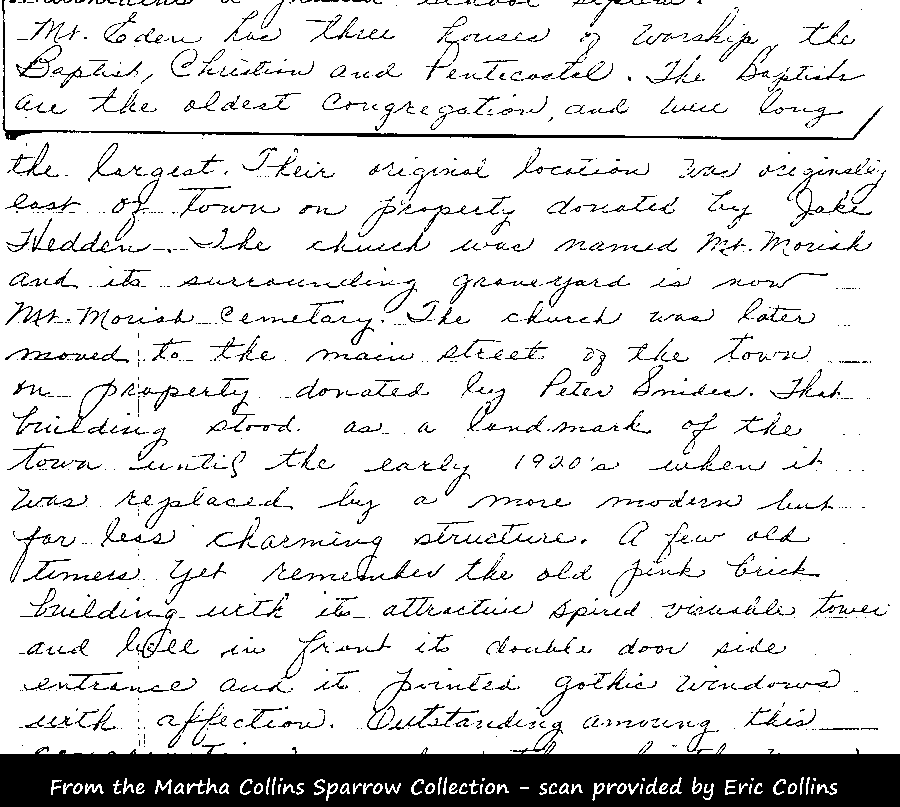 school system.
Mt. Eden has three houses of worship, the
Baptist, Christian and Pentecostal. The Baptists
are the oldest congregation, and were long
the largest. Their original location was originally
east of town on property donated by Jake
Hedden. The church was named Mt. Moriah
and its surrounding graveyard is now
Mt. Moriah Cemetary. The church was later
moved to the main street of the town
on property donated by Peter Snider. That
building stood as a landmark of the
town until the early 1920's when it
was replaced by a more modern but
far less charming structure. A few old
timers yet remember the old pink brick
building with its attractive spired visuable tower
and bell in front it double door side
entrance and it pointed gothic windows
with affection. Outstanding amoung this
From the Martha Collins Sparrow Collection - scan provided by Eric Collins